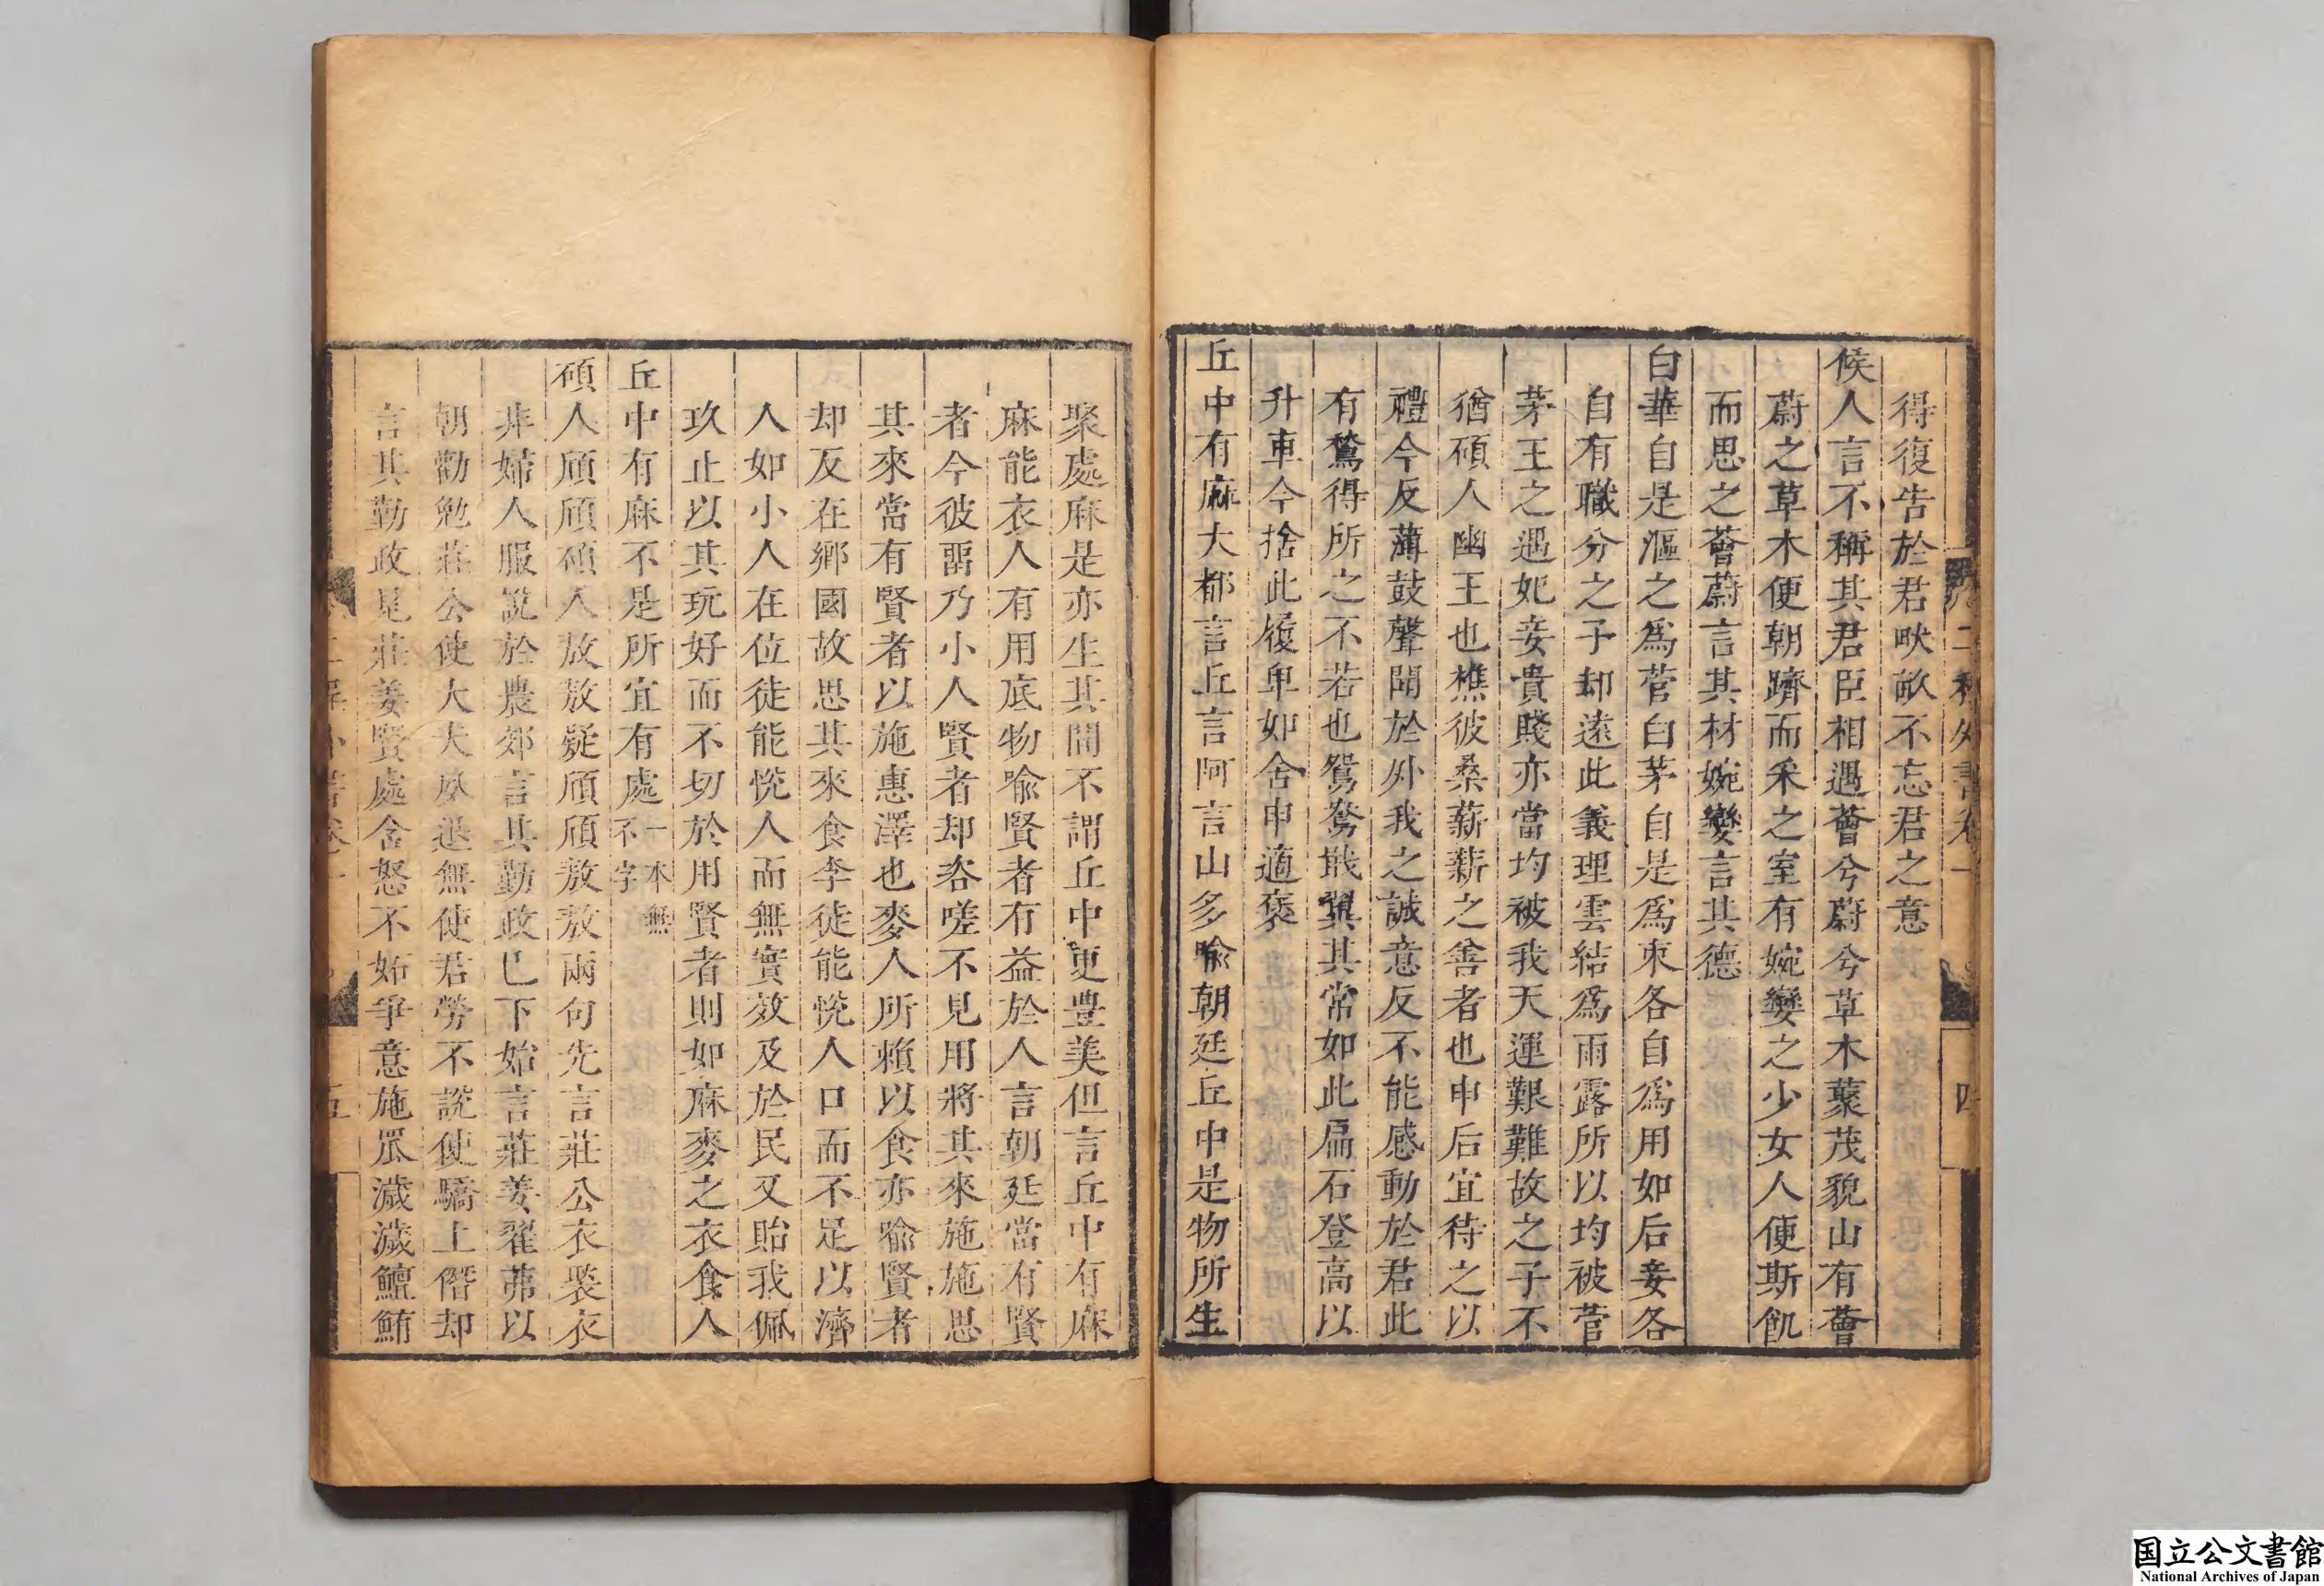 二程外書卷一
四
得復告於君畎畝不忘君之意
候人言不稱其君臣相遇薈兮蔚兮草木蘩茂貌山有薈
蔚之草木便朝隮而采之室有婉孌之少女人便斯飢
而思之薈蔚言其材婉孌言其德
白華自是漚之爲菅白茅自是爲束各自爲用如后妾各
自有職分之子却遠此義理雲結爲雨露所以均被菅
茅王之遇妃妾貴賤亦當均被我天運艱難故之子不
猶碩人幽王也樵彼桑薪薪之善者也申后宜待之以
禮今反薄鼓聲聞於外我之誠意反不能感動於君此
有鶖得所之不若也鴛鴦戢翼其常如此扁石登高以
升車今捨此履卑如舍申適褒
丘中有麻大都言丘言阿言山多喻朝廷丘中是物所生
聚處麻是亦生其間不謂丘中更豊美但言丘中有麻
麻能衣人有用底物喻賢者有益於人言朝廷當有賢
者今彼留乃小人賢者却咨嗟不見用將其來施施思
其來當有賢者以施惠澤也麥人所賴以食亦喻賢者
却反在鄉國故思其來食李徒能悅人口而不足以濟
人如小人在位徒能悅人而無實效及於民又貽我佩
玖止以其玩好而不切於用賢者則如麻麥之衣食人
丘中有麻不是所宜有處一本無不字
碩人頎頎碩人敖敖疑頎頎敖敖兩句先言莊公衣褧衣
非婦人服說於農郊言其勤政已下始言莊姜翟茀以
朝勸勉莊公使大夫夙退無使君勞不說使驕上僭却
言其勤政見莊姜賢處含怒不妬爭意施罛濊濊鱣鮪
五
国立公文書館
National Archives of Japan